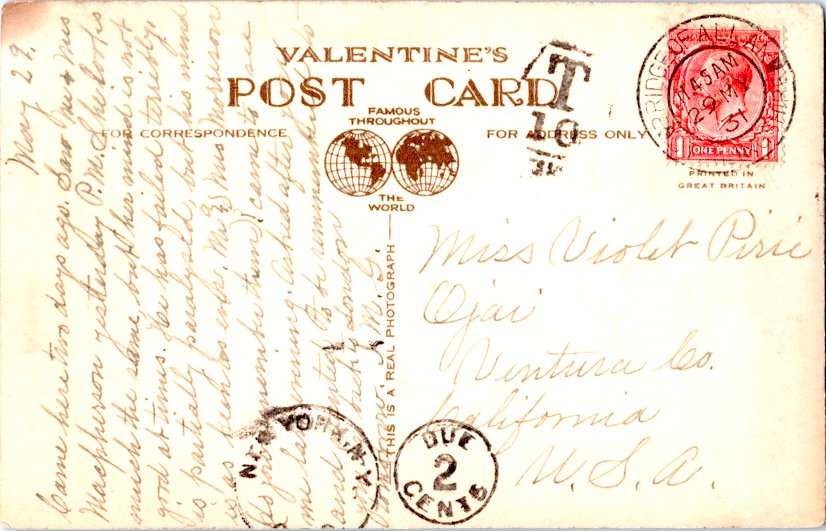 VALENTINE'S
POST CARD
FAMOUS
THROUGHOUT
THE
WORLD
FOR CORRESPONDENCE
FOR ADDRESS ONLY
PRINTED IN
GREAT BRITAIN
THIS IS A REAL PHOTOGRAPH
T
10
BRIDGE OF ALLAN
11 45 AM
31
ONE PENNY
1 1
May 29.
Came here two days ago. Saw Mr & Mrs
Macpherson yesterday P.M. She looks
much the same, but her mind is not
good at times. He has failed terribly,
is partially paralysed, but his mind
is as keen as ever. Mr & Mrs Morrison
remember them) came to see
me last evening. Asked after
and wanted to be remembered
back to London
Miss Violet Pirie
Ojai
Ventura Co.
California
U. S. A.
NEW YORK, N.Y.
DUE
2
CENTS